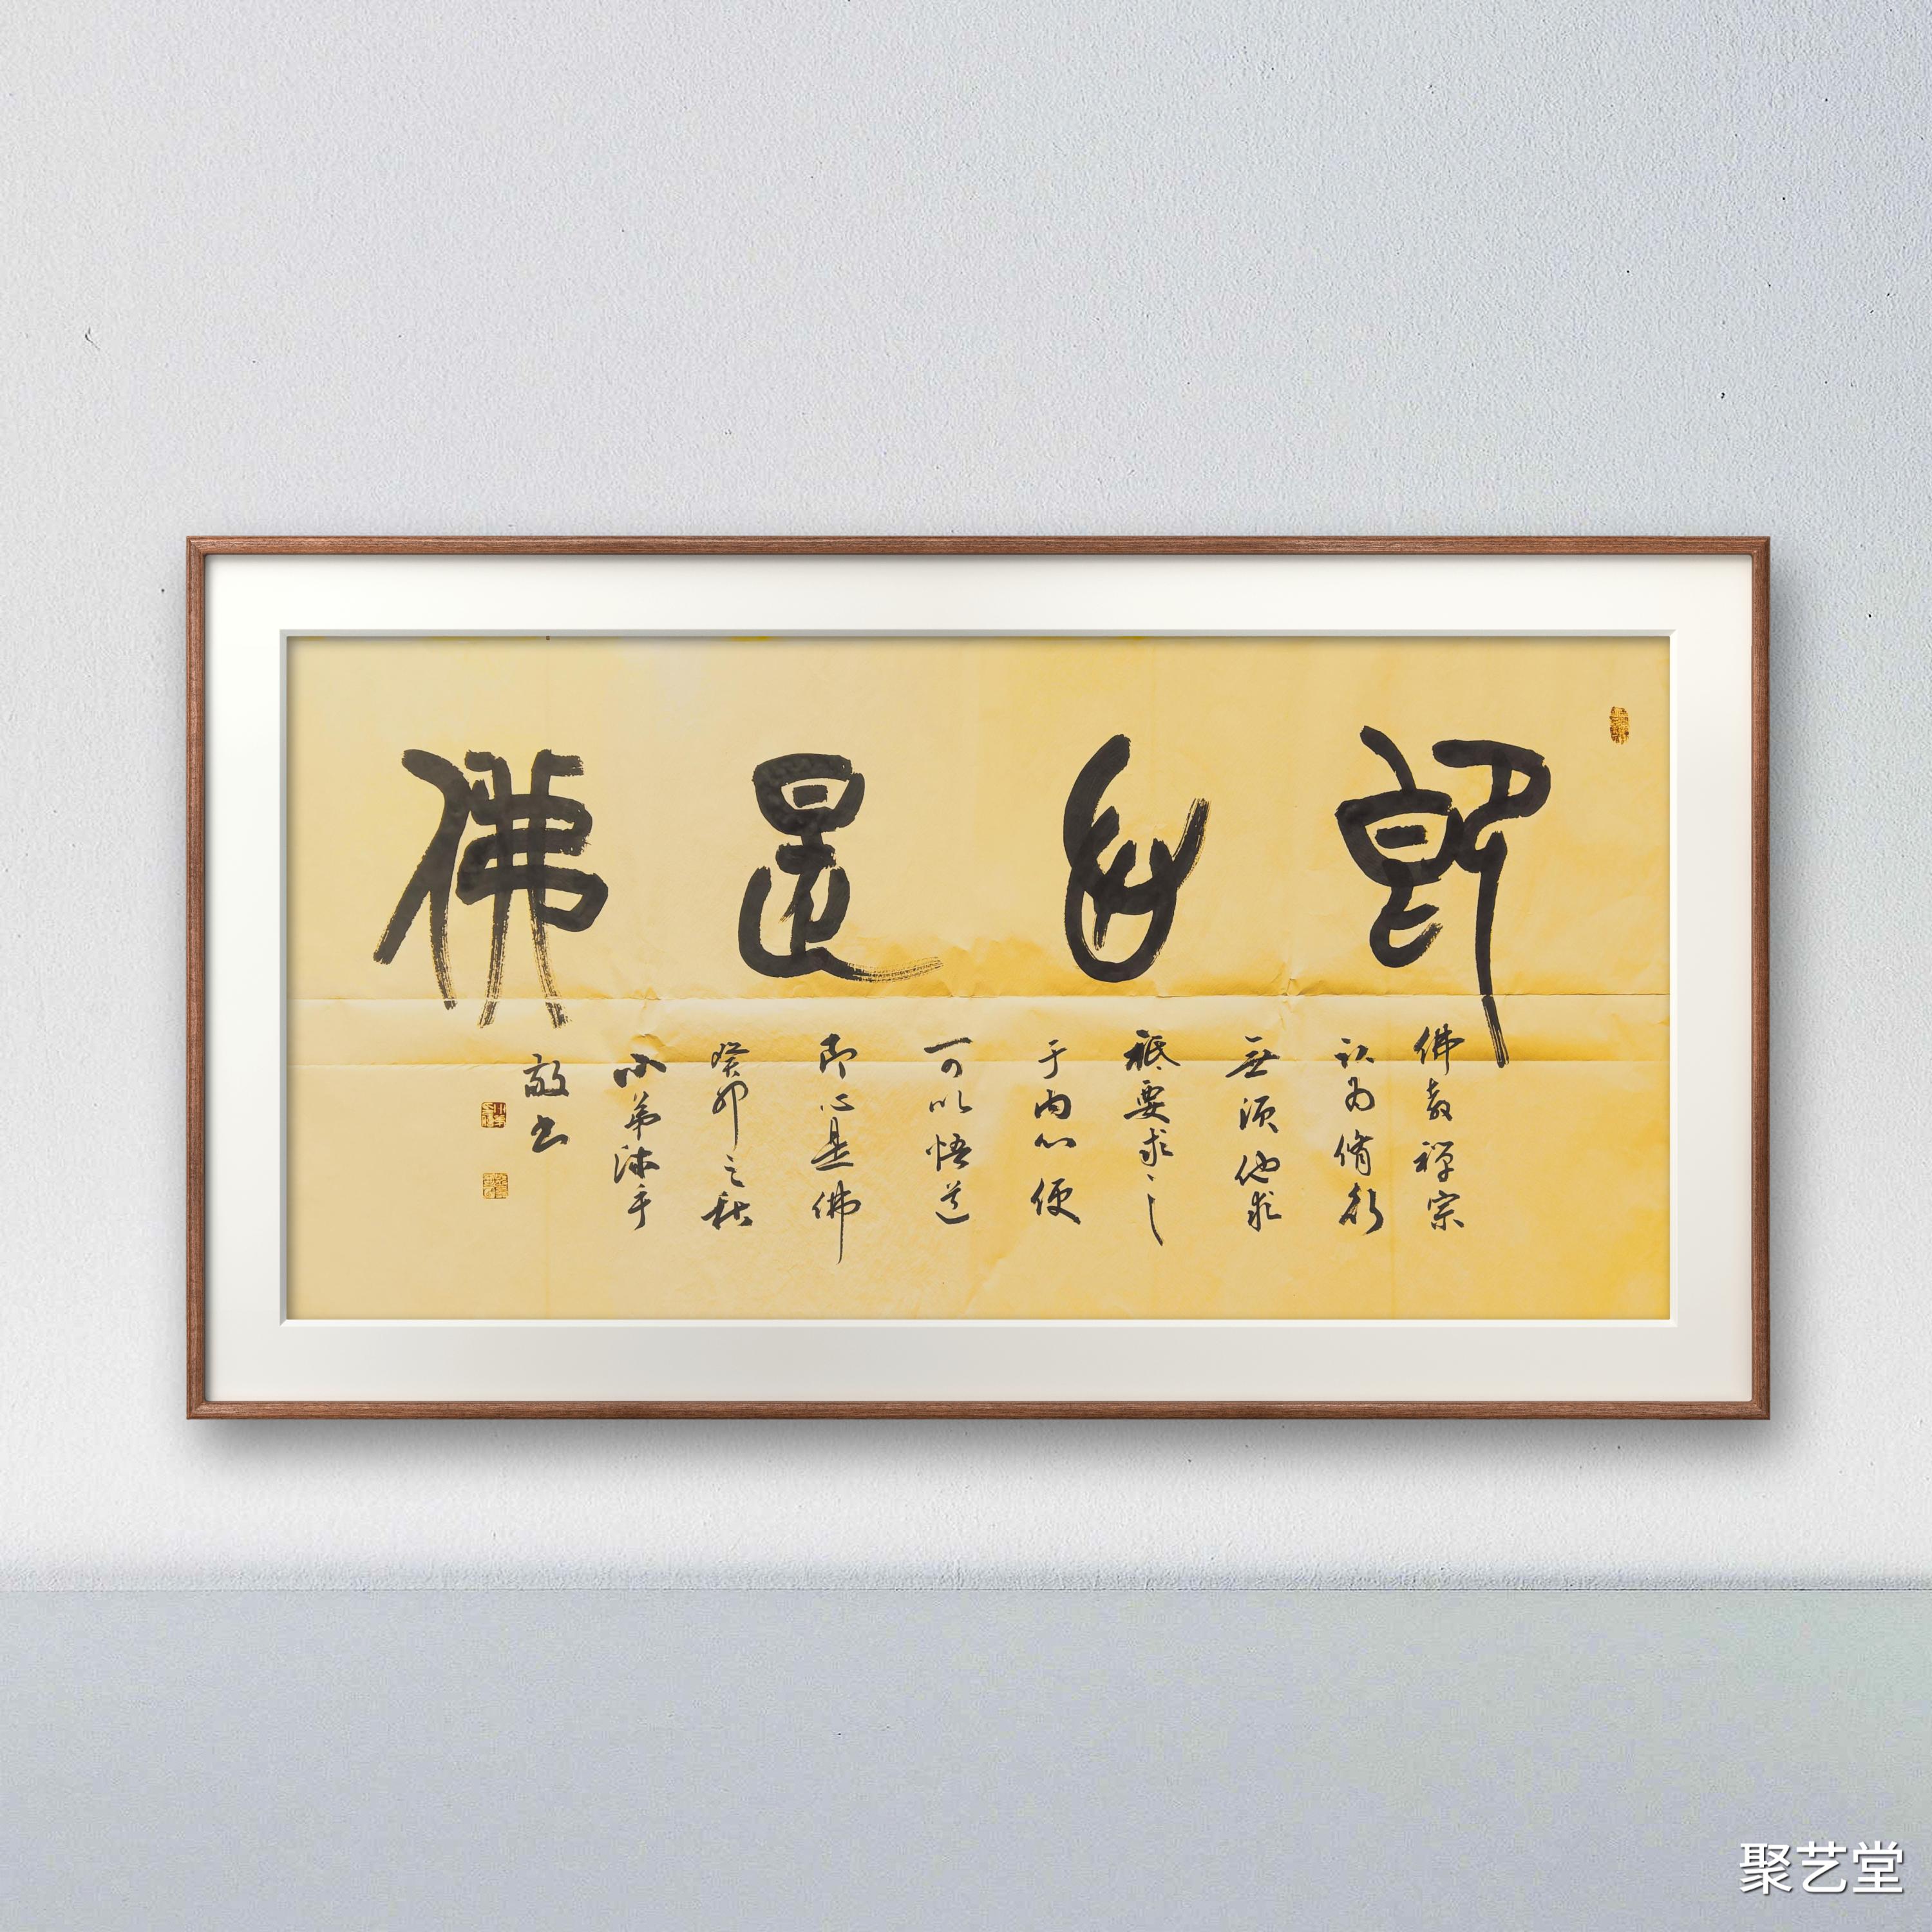 即心是佛
佛教禅宗
认为脩行
無須他求
祗要求之
于内心便
可以悟道
即心是佛
癸卯之秋
小弟沐手
敬书
聚艺堂